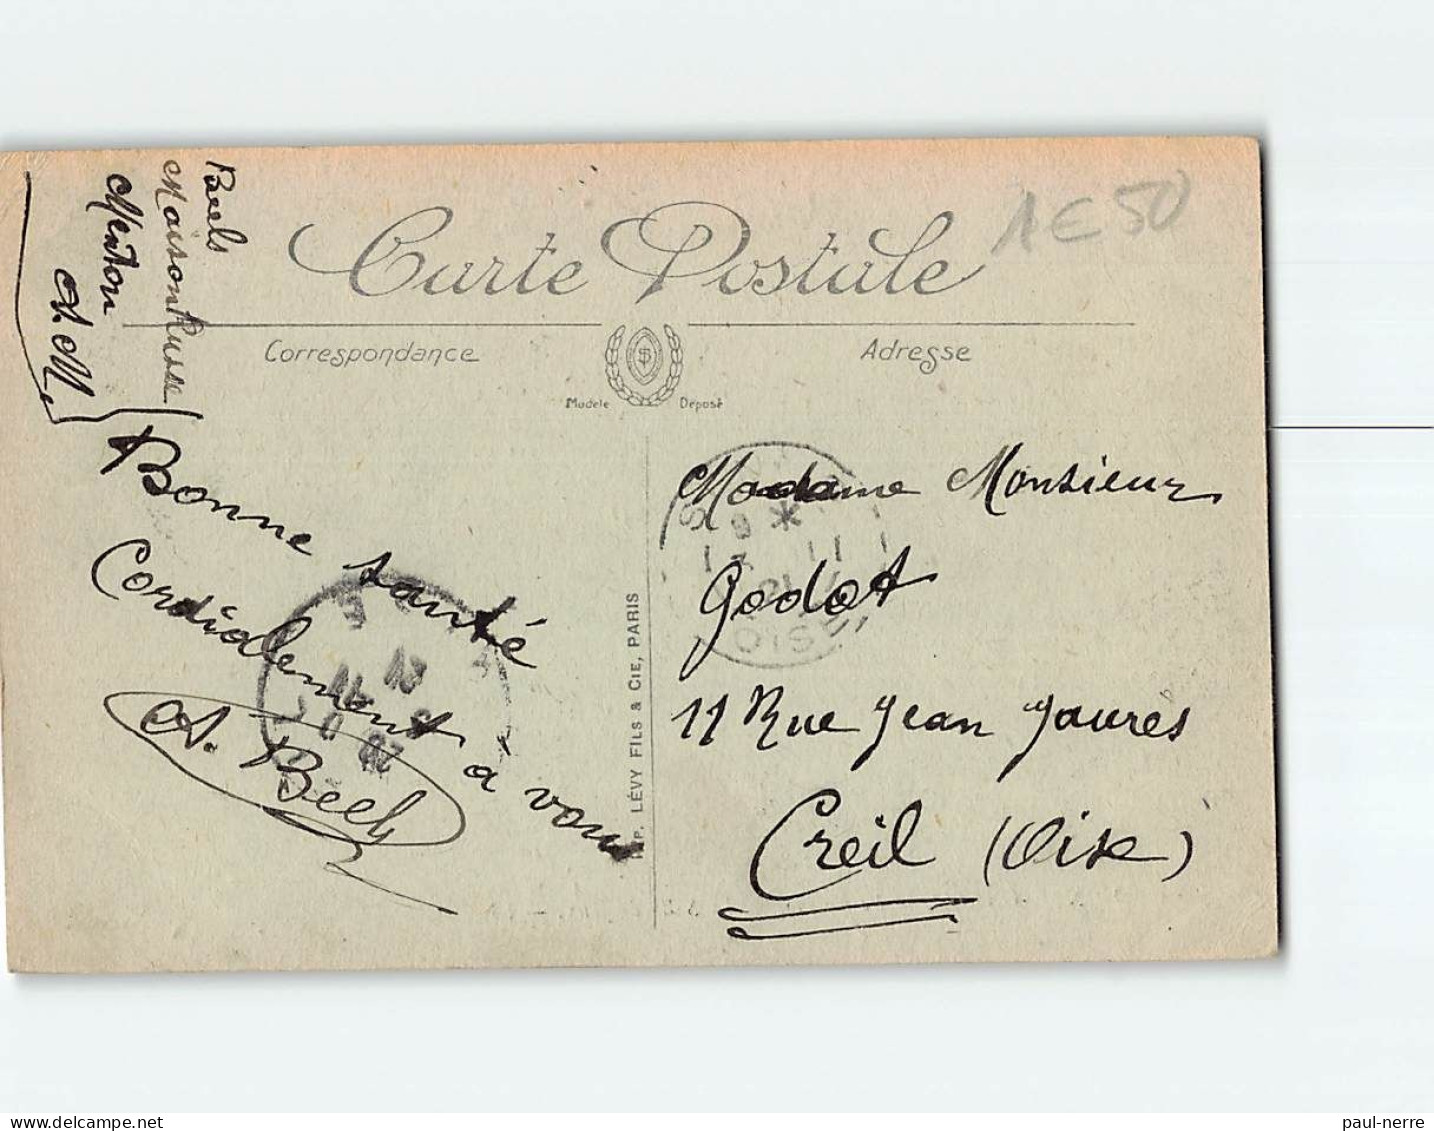 1 E 50
Carte Postale
Correspondance
Adresse
Modele Déposé
Beels
Maison Russe
Menton
A. M.
Bonne santé
Cordialement à vous
A. Beels
IMP. LÉVY FILS & CIE, PARIS
Madame Monsieur
Godot
11 Rue Jean Jaures
Creil (Oise)
OISE
paul-nerre